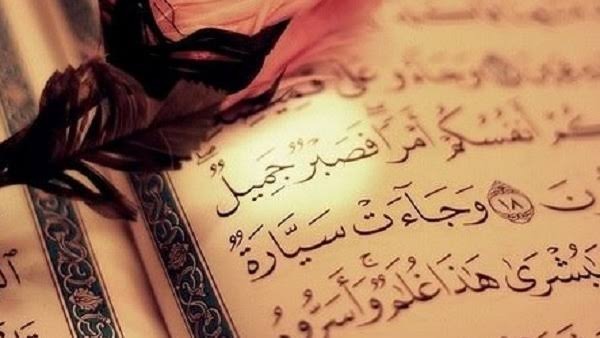 وَجَآءُو عَلَىٰ قَمِيصِهِۦ
كُمْ أَنفُسُكُمْ أَمْرًا فَصَبْرٌ جَمِيلٌ
ونَ ١٨ وَجَآءَتْ سَيَّارَةٌ
يَٰبُشْرَىٰ هَٰذَا غُلَٰمٌ ۚ وَأَسَرُّوهُ